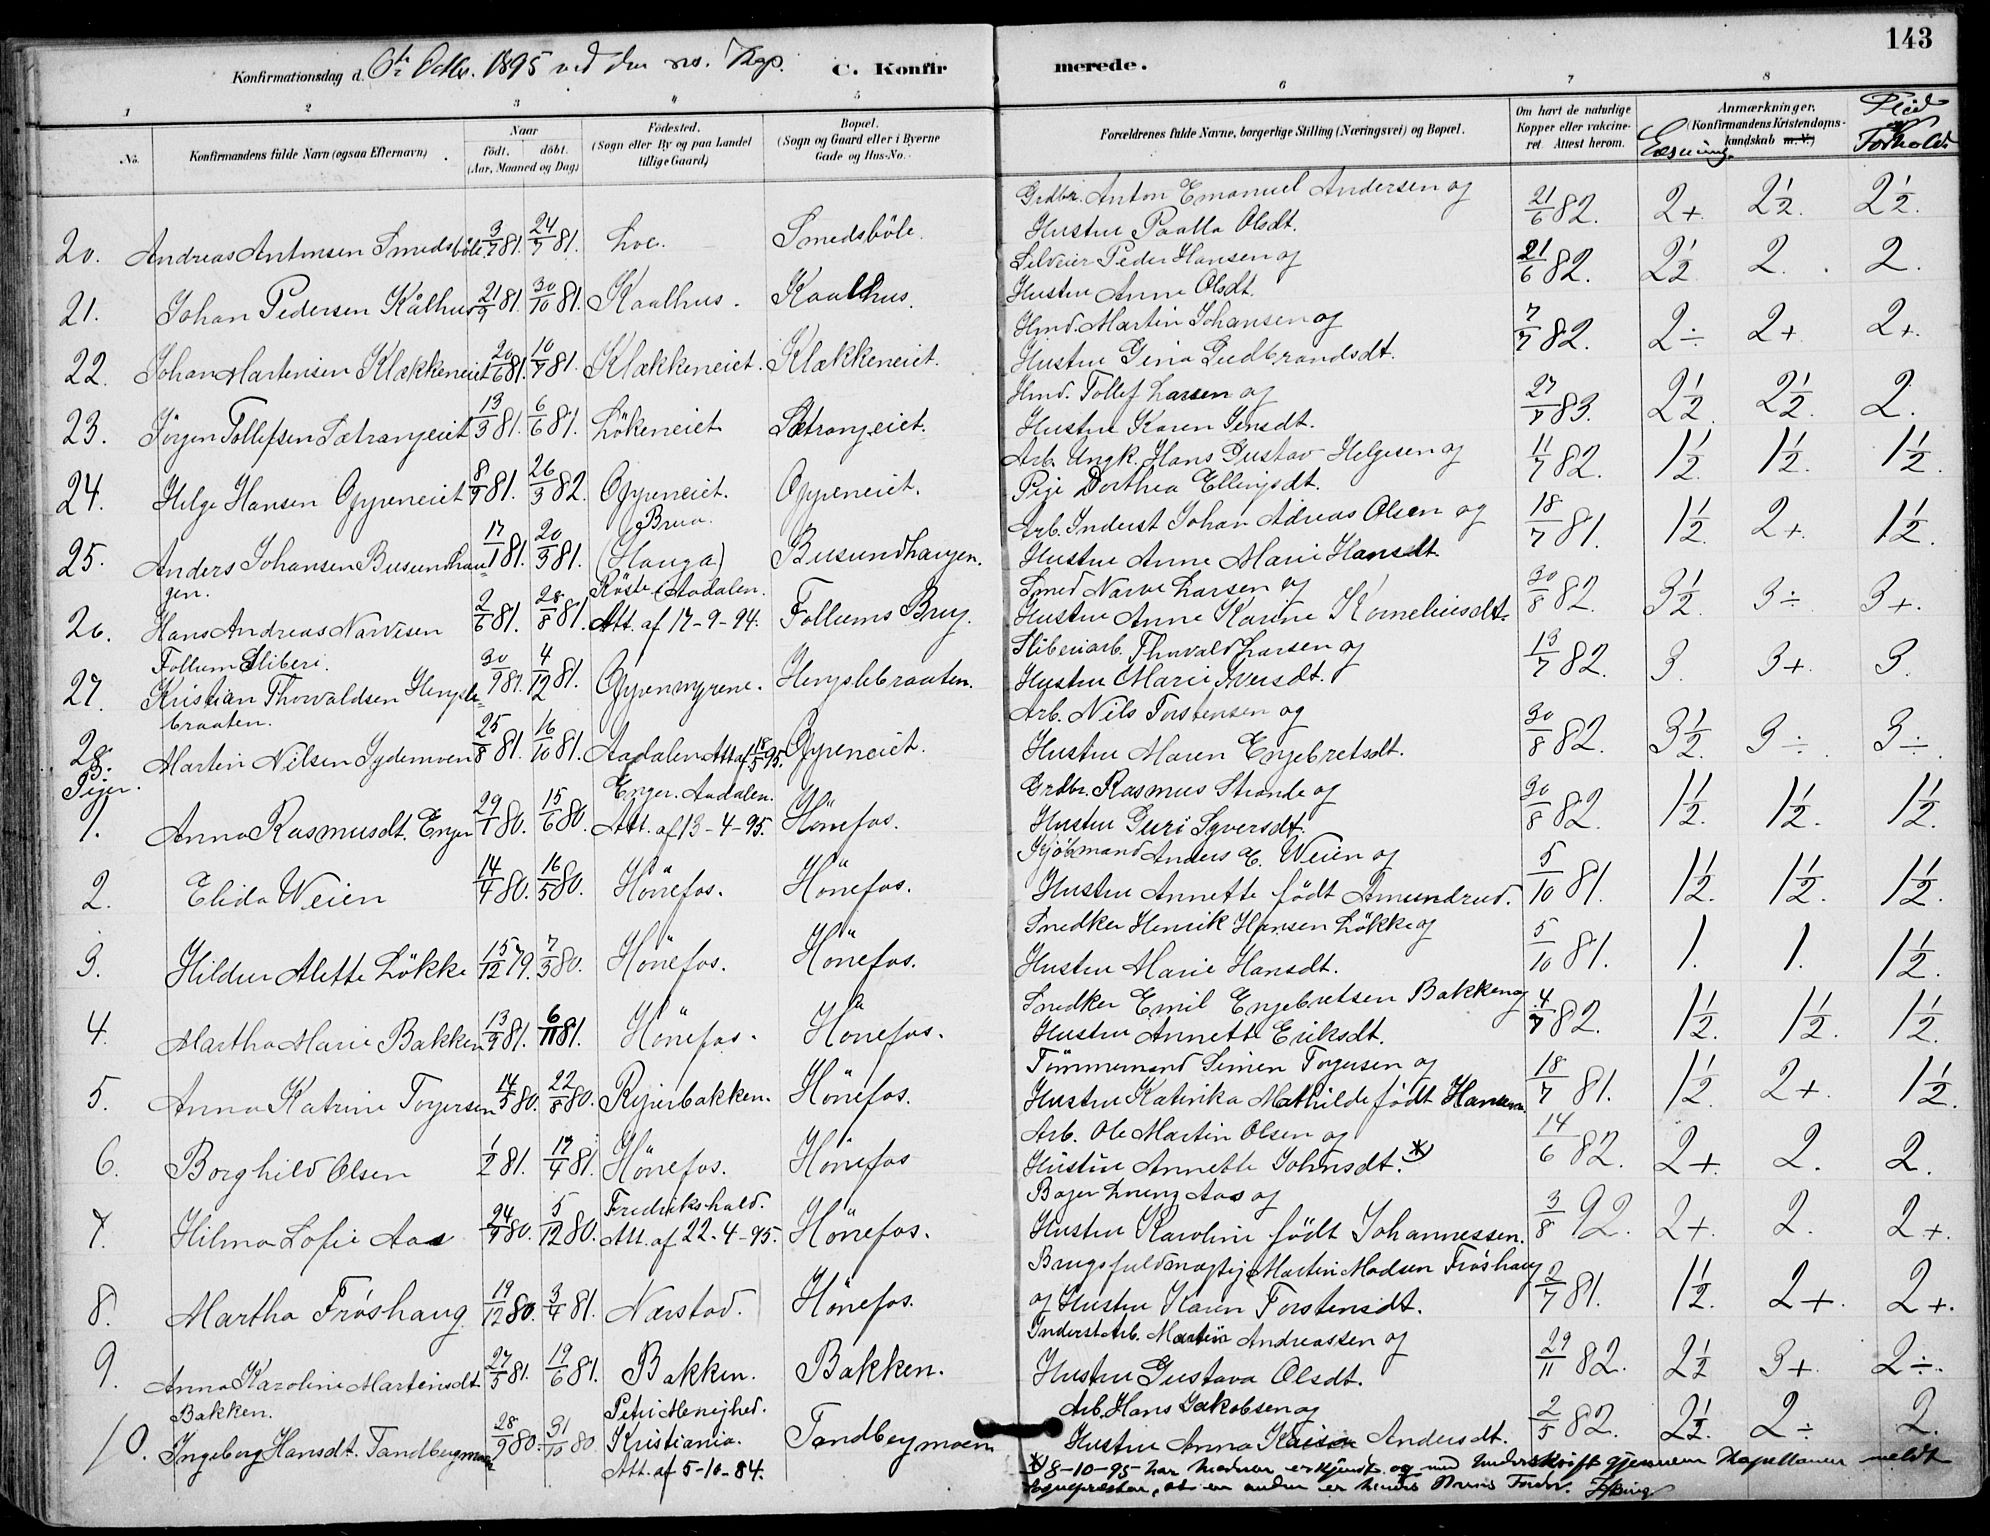 143
Konfirmationsdag d. 6te Octbr. 1895 ved den res. Kap. C. Konfirmerede.
1 2 3 4 5 6 7 8
No. Konfirmandens fulde Navn (ogsaa Efternavn). Naar født. døbt. (Aar, Maaned og Dag) Fødested. (Sogn eller By og paa Landet tillige Gaard) Bopæl. (Sogn og Gaard eller i Byerne Gade og Hus-No. Forældrenes fulde Navne, borgerlige Stilling (Næringsvei) og Bopæl. Om havt de naturlige Kopper eller vakcineret Attest herom. Anmærkninger. (Konfirmandens Kristendomskundskab m. V.) Læsning. Flid og Forhold.
Grdbr. Anton Emanuel Andersen og
20. Andreas Antonsen Smedsböle 3/7 81. 24/7 81. Loe. Smedsböle. Hustru Paalla Olsdt. 21/6 82. 2+. 2 1/2. 2 1/2.
Peder Hansen og
21. Johan Pedersen Kålhus 21/9 81. 30/10 81. Kaalhus. Kaalhus. Hustru Anne Olsdt. 21/6 82. 2 1/2 2. 2.
Hmd. Martin Johansen og
22. Johan Martinsen Klækkeneiet 20/6 81. 10/7 81. Klækkeneiet. Klækkeneiet. Hustru Gina Gudbrandsdt. 7/7 82. 2÷ 2+ 2+.
Hmd. Tollef Larsen og
23. Jörgen Tollefsen Sætrangeiet 13/3 81. 6/6 81. Lökeneiet Sætrangeiet. Hustru Karen Jensdt. 27/7 83. 2 1/2. 2 1/2. 2.
Arb. Ungk. Hans Gustav Helgesen og
24. Helge Hansen Oppeneiet 8/9 81. 26/3 82. Oppeneiet. Oppeneiet. Pige Dorthea Ellingsdt. 11/7 82. 1 1/2. 1 1/2. 1 1/2.
Brua. Arb. Inderst Johan Adreas Olsen og
25. Anders Johansen Busundhau= 17/1 81. 20/3 81. (Hauga) Busundhaugen. Hustru Anne Marie Hansdt 18/7 81. 1 1/2. 2+. 1 1/2.
gen. Röste i Aadalen. Smed Narve Larsen og
26. Hans Andreas Narvesen 2/6 81. 28/8 81. Att. af 17-9-94. Follums Brug. Hustru Anne Karine Korneliusdt. 30/8 82. 3 1/2. 3÷ 3+.
Follum Sliberi. Sliberiarb. Thorvald Larsen og
27. Kristian Thorvaldsen Hengsle= 30/9 81. 4/12 81. Oppenmyrene. Hengslebraaten. Hustru Marie Iversdt. 13/7 82. 3. 3+. 3.
braaten. Arb. Nils Torstensen og
28. Martin Nilsen Sydenmoen 25/8 81. 16/10 81. Aadalen Att af 18/5 95. Oppeneiet. Hustru Maren Engebretsdt. 30/8 82. 3 1/2. 3÷. 3÷.
Piger. Enger. Aadalen. Grdbr. Rasmus Strande og
1. Anna Rasmusdt. Enger 29/1 80. 15/6 80. Att. af 13-4-95. Hönefos. Hustru Guri Syversdt. 30/8 82. 1 1/2. 1 1/2. 1 1/2.
Kjöbmand Anders E. Weien og
2. Elida Weien 14/4 80. 16/5 80. Hönefos. Hönefos. Hustru Annette født Amundrud. 5/10 81. 1 1/2. 1 1/2. 1 1/2.
Snedker Henrik Hansen Lökke og
3. Hildur Alette Lökke 15/12 79. 7/3 80. Hönefos. Hönefos. Hustru Marie Hansdt. 5/10 81. 1. 1. 1 1/2.
Snedker Emil Engebretsen Bakken og
4. Martha Marie Bakken 13/9 81. 6/11 81. Hönefos. Hönefos. Hustru Annette Eriksdt. 4/7 82. 1 1/2. 1 1/2. 1 1/2.
Tömmermand Simen Torgersen og
5. Anna Katrine Torgersen 14/5 80. 22/8 80. Hönefos. Hustru Katinka Mathilde født Hansen. 18/7 81. 1 1/2. 2+. 1 1/2.
Arb. Ole Martin Olsen og
6. Borghild Olsen 1/2 81. 17/4 81. Hönefos. Hönefos Hustru Annette Johnsdt. *) 14/6 82. 2+. 2. 2.
Fredrikshald. Bager Lorenz Aas og
7. Hilma Sofie Aas 24/9 80. 5/12 80. Att. af 22-4-95. Hönefos. Hustru Karoline født Johannessen. 3/8 92. 2+. 2. 2+.
Brugsfuldmægtig Martin Madsen Fröshaug
8. Martha Fröshaug 19/12 80. 3/4 81. Nærstad. Hönefos. og Hustru Karen Torstensdt. 2/7 81. 1 1/2. 2+. 2+.
Inderst Arb. Martin Andreassen og
9. Anna Karoline Martinsdt 27/5 81. 19/6 81. Bakken. Bakken. Hustru Gustava Olsdt. 29/11 82. 2 1/2 3+. 2÷.
Bakken. Petri Menighed. Arb. Hans Jakobsen og
10. Ingeborg Hansdt. Tandbergmoen 28/9 80. 31/10 80. Kristiania. Tandbergmoen Hustru Anna Andersdt. 2/5 82. 2 1/2. 2÷ 2.
Att. af 5-10-84.
*) 8-10-95 har moderen erkjendt og med Underskrift gjennem Kapellanen meldt
Sognepræsten, at en anden er hendes Barns Fader.